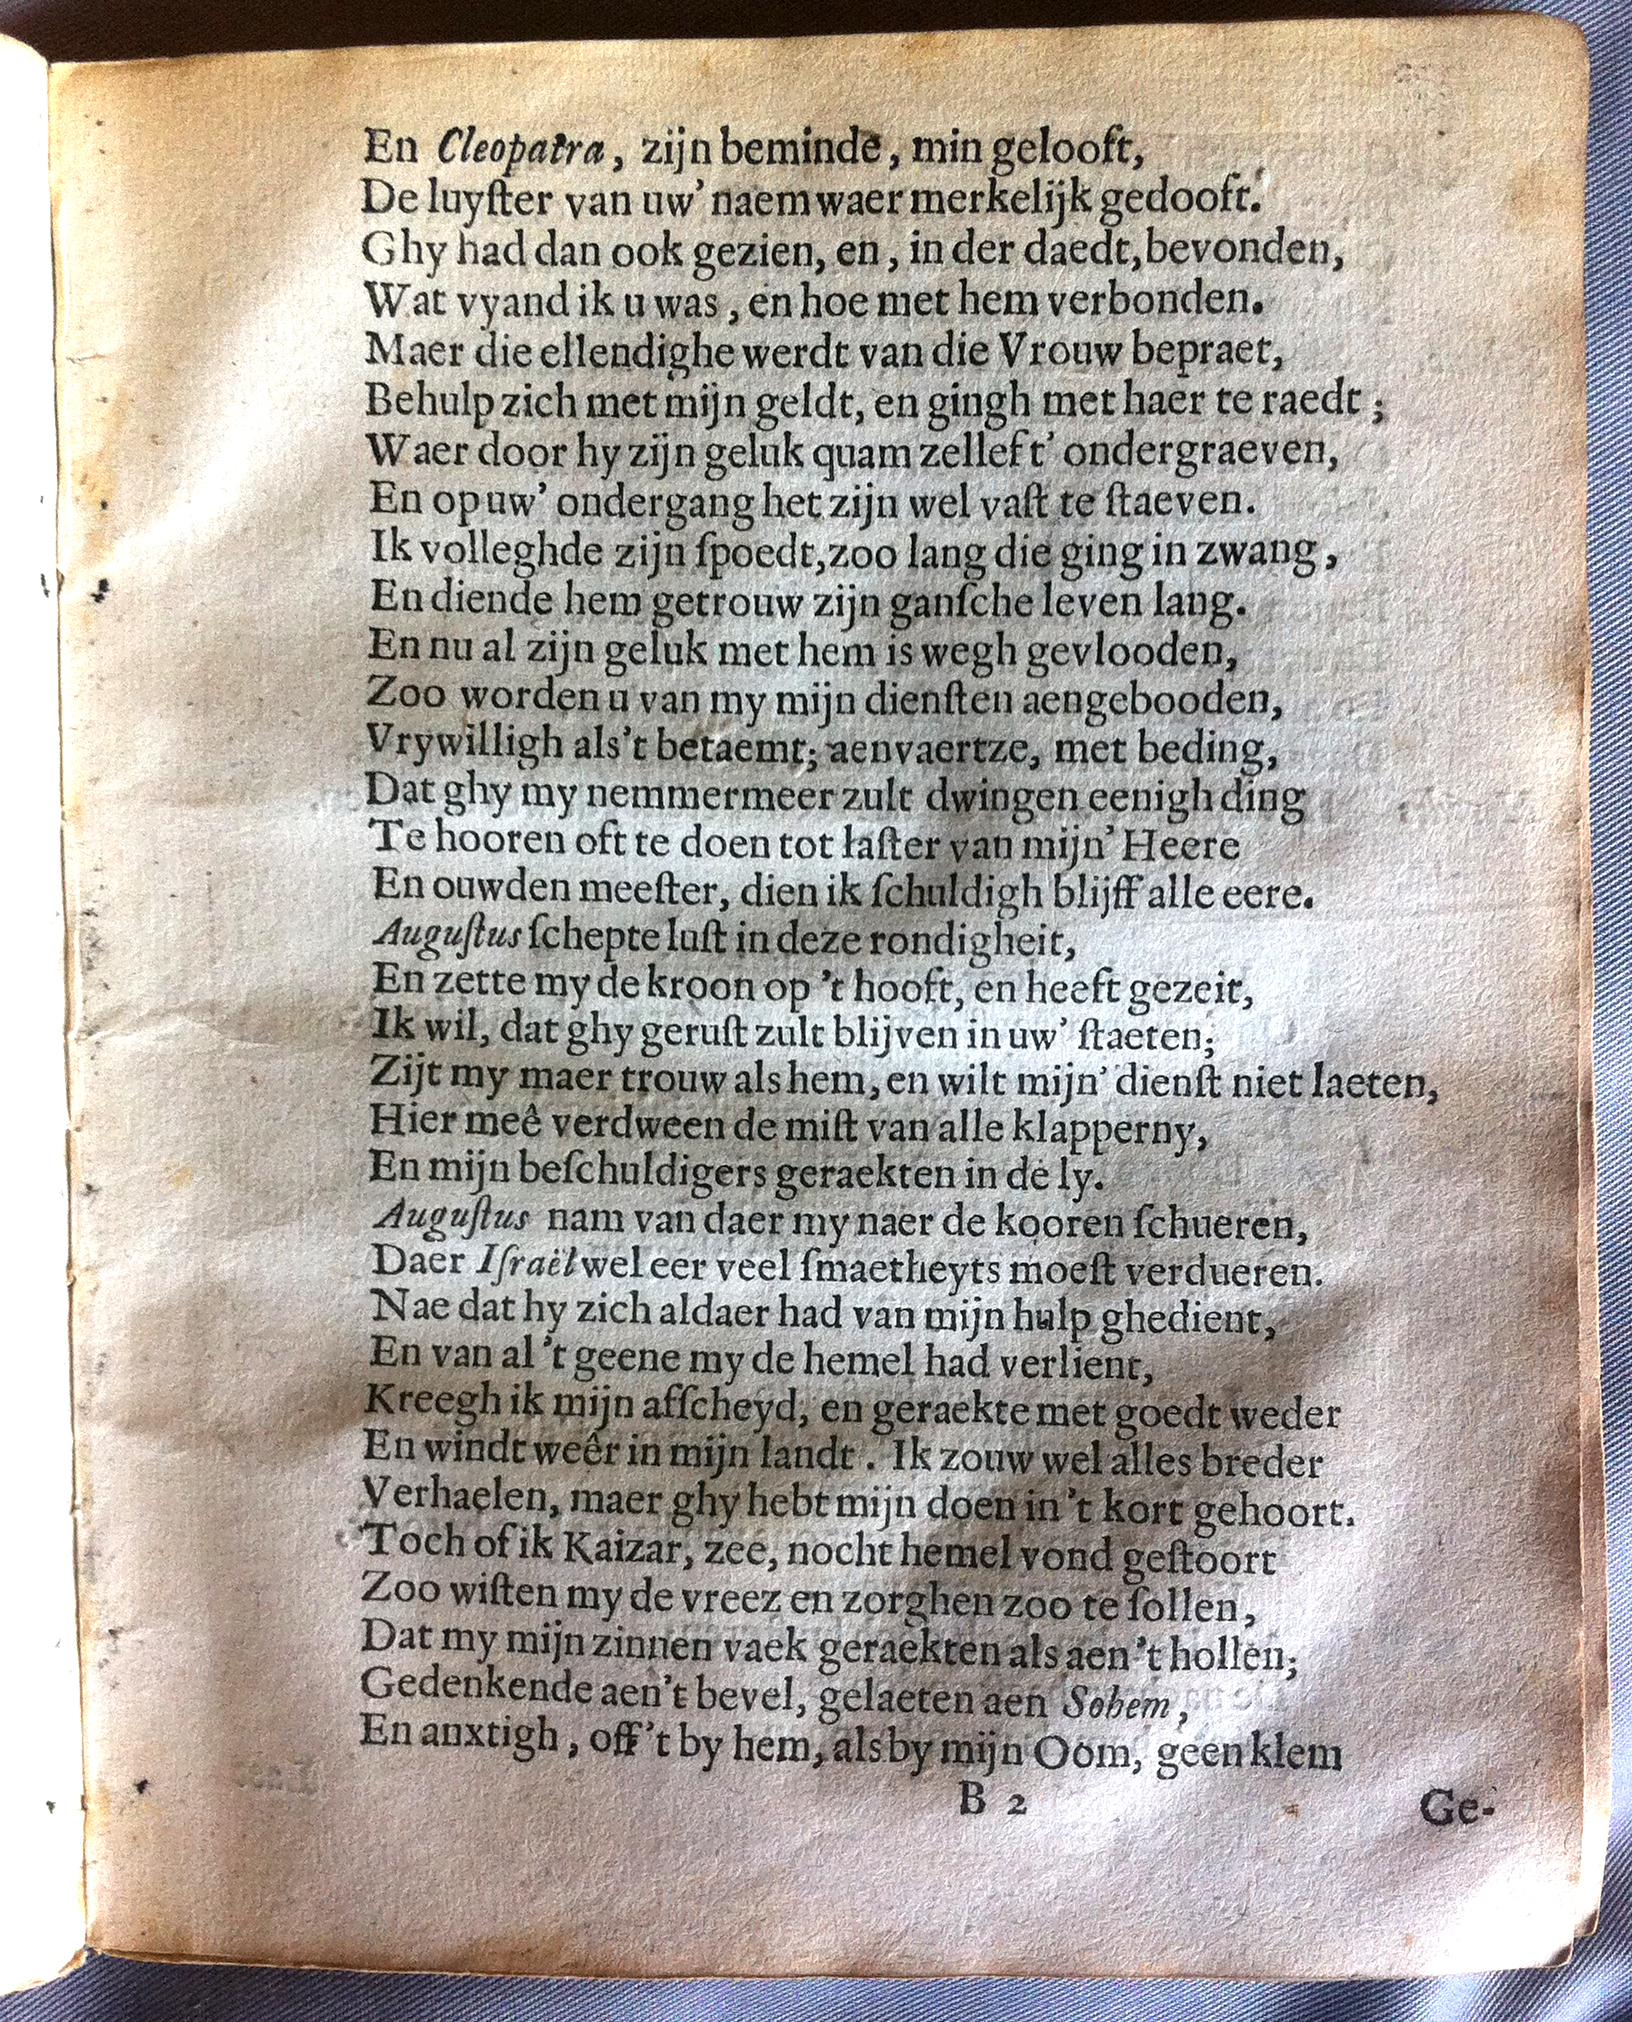 En Cleopatra, zijn beminde, min gelooft,
De luyſter van uw' naem waer merkelijk gedooft.
Ghy had dan ook gezien, en, in der daedt, bevonden,
Wat vyand ik u was, en hoe met hem verbonden.
Maer die ellendighe werdt van die Vrouw bepraet,
Behulp zich met mijn geldt, en gingh met haer te raedt;
Waer door hy zijn geluk quam zelleft' ondergraeven,
En op uw' ondergang het zijn wel vaſt te ſtaeven.
Ik volleghde zijn ſpoedt, zoo lang die ging in zwang,
En diende hem getrouw zijn ganſche leven lang.
En nu al zijn geluk met hem is wegh gevlooden,
Zoo worden u van my mijn dienſten aengebooden,
Vrywilligh als 't betaemt; aenvaertze, met beding,
Dat ghy my nemmermeer zult dwingen eenigh ding
Te hooren oft te doen tot laſter van mijn' Heere
En ouwden meeſter, dien ik ſchuldigh blijff alle eere.
Auguſtus ſchepte luſt in deze rondigheit,
En zette my de kroon op 't hooft, en heeft gezeit,
Ik wil, dat ghy geruſt zult blijven in uw' ſtaeten;
Zijt my maer trouw als hem, en wilt mijn' dienſt niet laeten,
Hier meê verdween de miſt van alle klapperny,
En mijn beſchuldigers geraekten in de ly.
Auguſtus nam van daer my naer de kooren ſchueren,
Daer Iſraël wel eer veel ſmaetheyts moeſt verdueren.
Nae dat hy zich aldaer had van mijn hulp ghedient,
En van al 't geene my de hemel had verlient,
Kreegh ik mijn afſcheyd, en geraekte met goedt weder
En windt weêr in mijn landt. Ik zouw wel alles breder
Verhaelen, maer ghy hebt mijn doen in 't kort gehoort.
Toch of ik Kaizar, zee, nocht hemel vond geſtoort
Zoo wiſten my de vreez en zorghen zoo te ſollen,
Dat my mijn zinnen vaek geraekten als aen 't hollen;
Gedenkende aen 't bevel, gelaeten aen Sohem,
En anxtigh, off 't by hem, als by mijn Oom, geen klem
B 2 Ge-